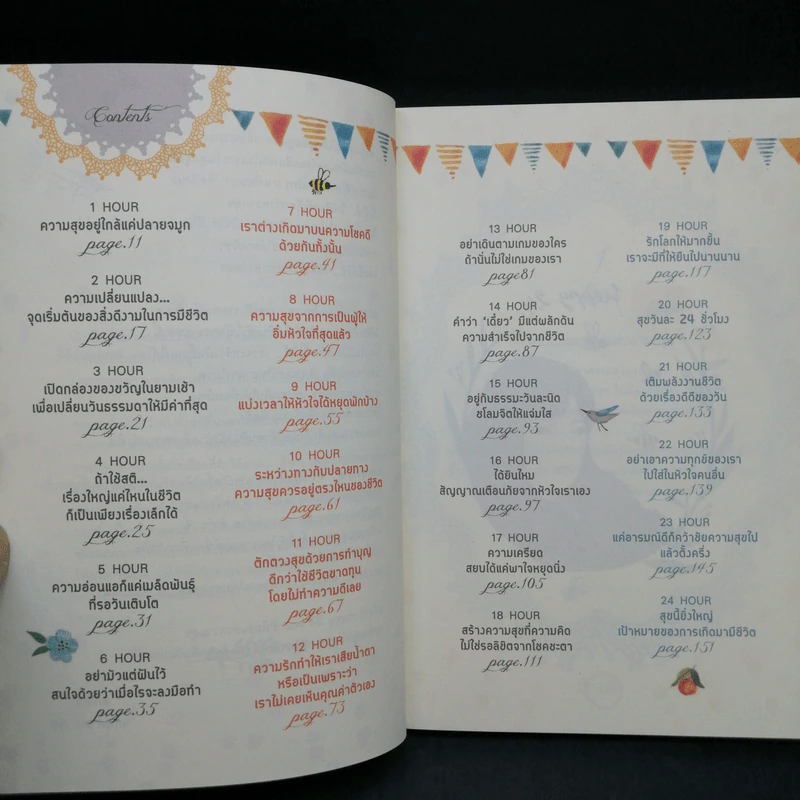 Contents
1 HOUR
ความสุขอยู่ใกล้แค่ปลายจมูก
page.11
2 HOUR
ความเปลี่ยนแปลง...
จุดเริ่มต้นของสิ่งดีงามในการมีชีวิต
page.17
3 HOUR
เปิดกล่องของขวัญในยามเช้า
เพื่อเปลี่ยนวันธรรมดาให้มีค่าที่สุด
page.21
4 HOUR
ถ้าใช้สติ...
เรื่องใหญ่แค่ไหนในชีวิต
ก็เป็นเพียงเรื่องเล็กได้
page.25
5 HOUR
ความอ่อนแอก็แค่เมล็ดพันธุ์
ที่รอวันเติบโต
page.31
6 HOUR
อย่ามัวแต่ฝันไว้
สนใจด้วยว่าเมื่อไรจะลงมือทำ
page.35
7 HOUR
เราต่างเกิดมาบนความโชคดี
ด้วยกันทั้งนั้น
page.41
8 HOUR
ความสุขจากการเป็นผู้ให้
อิ่มหัวใจที่สุดแล้ว
page.47
9 HOUR
แบ่งเวลาให้หัวใจได้หยุดพักบ้าง
page.55
10 HOUR
ระหว่างทางกับปลายทาง
ความสุขควรอยู่ตรงไหนของชีวิต
page.61
11 HOUR
ตักตวงสุขด้วยการทำบุญ
ดีกว่าใช้ชีวิตขาดทุน
โดยไม่ทำความดีเลย
page.67
12 HOUR
ความรักทำให้เราเสียน้ำตา
หรือเป็นเพราะว่า
เราไม่เคยเห็นคุณค่าตัวเอง
page.73
13 HOUR
อย่าเดินตามเกมของใคร
ถ้านั่นไม่ใช่เกมของเรา
page81
14 HOUR
คำว่า ‘เดี๋ยว’ มีแต่ผลักดัน
ความสำเร็จไปจากชีวิต
page.87
15 HOUR
อยู่กับธรรมะวันละนิด
ชโลมจิตให้แจ่มใส
page.93
16 HOUR
ได้ยินไหม
สัญญาณเตือนภัยจากหัวใจเราเอง
page.97
17 HOUR
ความเครียด
สยบได้แค่พาใจหยุดนิ่ง
page.105
18 HOUR
สร้างความสุขที่ความคิด
ไม่ใช่รอลิขิตจากโชคชะตา
page.111
19 HOUR
รักโลกให้มากขึ้น
เราจะมีที่ให้ยืนไปนานนาน
page.117
20 HOUR
สุขวันละ 24 ชั่วโมง
page.123
21 HOUR
เติมพลังงานชีวิต
ด้วยเรื่องดีดีของวัน
page.133
22 HOUR
อย่าเอาความทุกข์ของเรา
ไปใส่ในหัวใจคนอื่น
page.139
23 HOUR
แค่อารมณ์ดีก็คว้าชัยความสุขไป
แล้วตั้งครึ่ง
page.145
24 HOUR
สุขนี้ยิ่งใหญ่
เป้าหมายของการเกิดมามีชีวิต
page.151